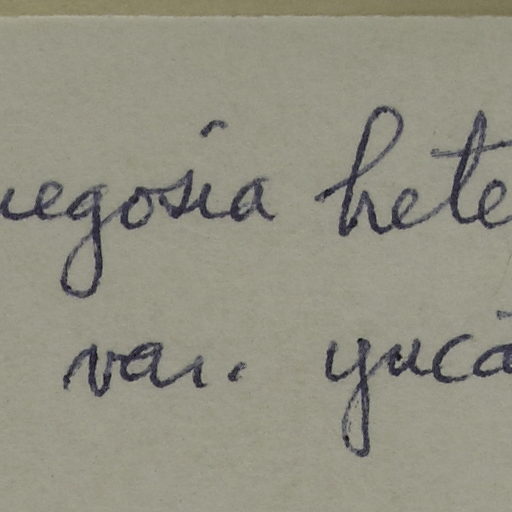 uegosia hete
var. yuca